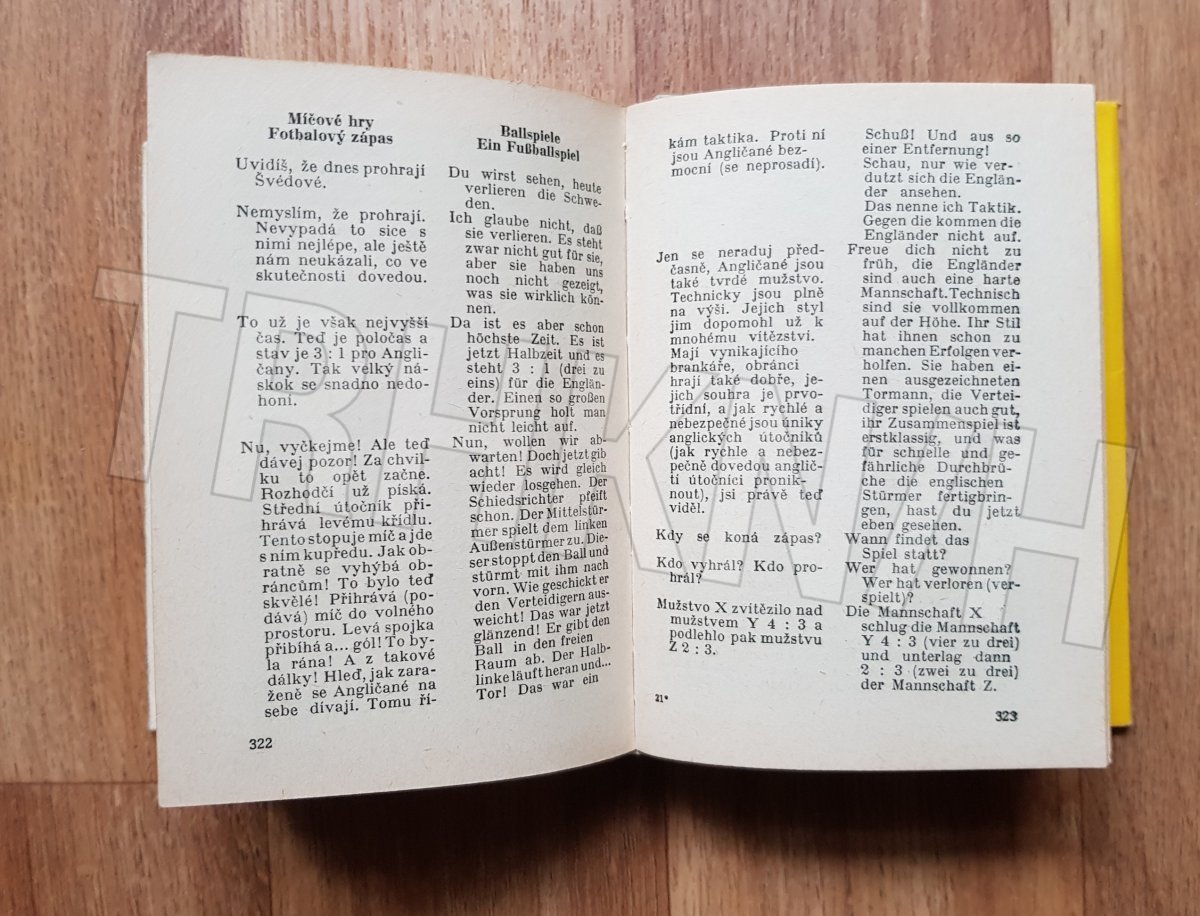 Míčové hry
Fotbalový zápas
Uvidíš, že dnes prohrají
Švédové.
Nemyslím, že prohrají.
Nevypadá to sice s
nimi nejlépe, ale ještě
nám neukázali, co ve
skutečnosti dovedou.
To už je však nejvyšší
čas. Teď je poločas a
stav je 3 : 1 pro Angli-
čany. Tak velký ná-
skok se snadno nedo-
honí.
Nu, vyčkejme! Ale teď
dávej pozor! Za chvil-
ku to opět začne.
Rozhodčí už píská.
Střední útočník při-
hrává levému křídlu.
Tento stopuje míč a jde
s ním kupředu. Jak ob-
ratně se vyhýbá ob-
ráncům! To bylo teď
skvělé! Přihrává (po-
dává) míč do volného
prostoru. Levá spojka
přibíhá a... gól! To by-
la rána! A z takové
dálky! Hleď, jak zara-
ženě se Angličané na
sebe dívají. Tomu ří-
322
Ballspiele
Ein Fußballspiel
Du wirst sehen, heute
verlieren die Schwe-
den.
Ich glaube nicht, daß
sie verlieren. Es steht
zwar nicht gut für sie,
aber sie haben uns
noch nicht gezeigt,
was sie wirklich kön-
nen.
Da ist es aber schon
höchste Zeit. Es ist
jetzt Halbzeit und es
steht 3 : 1 (drei zu
eins) für die Englän-
der. Einen so großen
Vorsprung holt man
nicht leicht auf.
Nun, wollen wir ab-
warten! Doch jetzt gib
acht! Es wird gleich
wieder losgehen. Der
Schiedsrichter pfeift
schon. Der Mittelstür-
mer spielt dem linken
Außenstürmer zu. Die-
ser stoppt den Ball und
stürmt mit ihm nach
vorn. Wie geschickt er
den Verteidigern aus-
weicht! Das war jetzt
glänzend! Er gibt den
Ball in den freien
Raum ab. Der Halb-
linke läuft heran und...
Tor! Das war ein
kám taktika. Proti ní
jsou Angličané bez-
mocní (se neprosadí).
Jen se neraduj před-
časně, Angličané jsou
také tvrdé mužstvo.
Technicky jsou plně
na výši. Jejich styl
jim dopomohl už k
mnohému vítězství.
Mají vynikajícího
brankáře, obránci
hrají také dobře, je-
jich souhra je prvo-
třídní, a jak rychlé a
nebezpečné jsou úniky
anglických útočníků
(jak rychle a nebez-
pečně dovedou anglič-
tí útočníci pronik-
nout), jsi právě teď
viděl.
Kdy se koná zápas?
Kdo vyhrál? Kdo pro-
hrál?
Mužstvo X zvítězilo nad
mužstvem Y 4 : 3 a
podlehlo pak mužstvu
Z 2 : 3.
21*
Schuß! Und aus so
einer Entfernung!
Schau, nur wie ver-
dutzt sich die Englän-
der ansehen.
Das nenne ich Taktik.
Gegen die kommen die
Engländer nicht auf.
Freue dich nicht zu
früh, die Engländer
sind auch eine harte
Mannschaft. Technisch
sind sie vollkommen
auf der Höhe. Ihr Stil
hat ihnen schon zu
manchen Erfolgen ver-
holfen. Sie haben ei-
nen ausgezeichneten
Tormann, die Vertei-
diger spielen auch gut,
ihr Zusammenspiel ist
erstklassig, und was
für schnelle und ge-
fährliche Durchbrü-
che die englischen
Stürmer fertigbrin-
gen, hast du jetzt
eben gesehen.
Wann findet das
Spiel statt?
Wer hat gewonnen?
Wer hat verloren (ver-
spielt)?
Die Mannschaft X
schlug die Mannschaft
Y 4 : 3 (vier zu drei)
und unterlag dann
2 : 3 (zwei zu drei)
der Mannschaft Z.
323
TRHKNIH